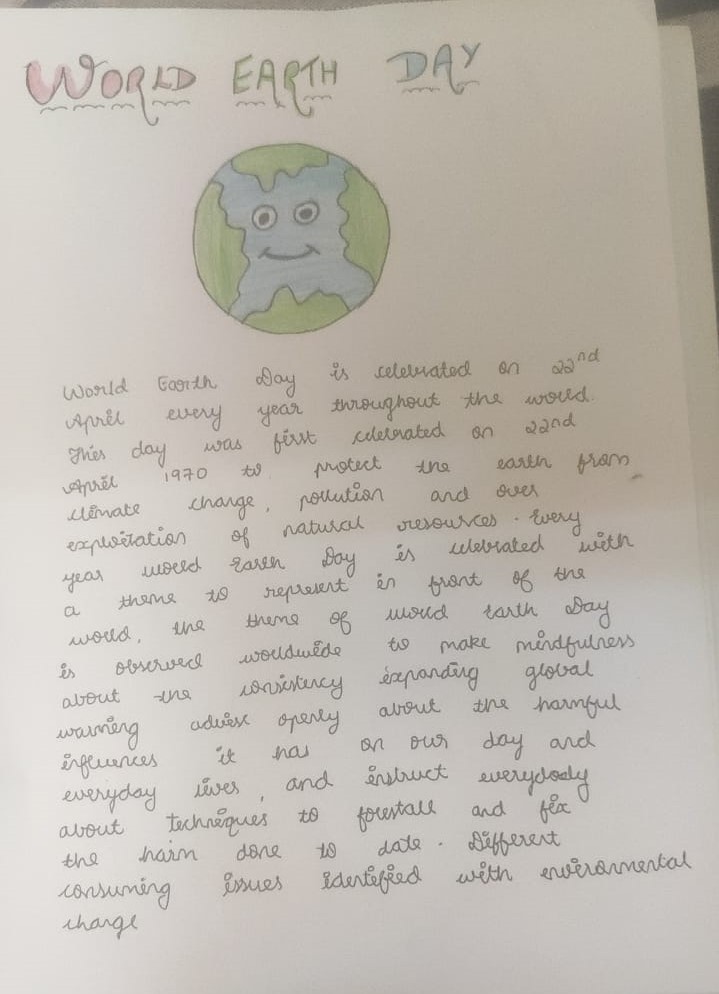 WORLD EARTH DAY
World Earth Day is celebrated on 22nd
April every year throughout the world.
This day was first celebrated on 22nd
April 1970 to protect the earth from
climate change, pollution and over
exploitation of natural resources. Every
year world Earth Day is celebrated with
a theme to represent in front of the
world, the theme of world Earth Day
is observed worldwide to make mindfulness
about the consistency expanding global
warming advise openly about the harmful
influences it has on our day and
everyday lives, and instruct everybody
about techniques to forestall and fix
the harm done to date. Different
consuming issues identified with environmental
change